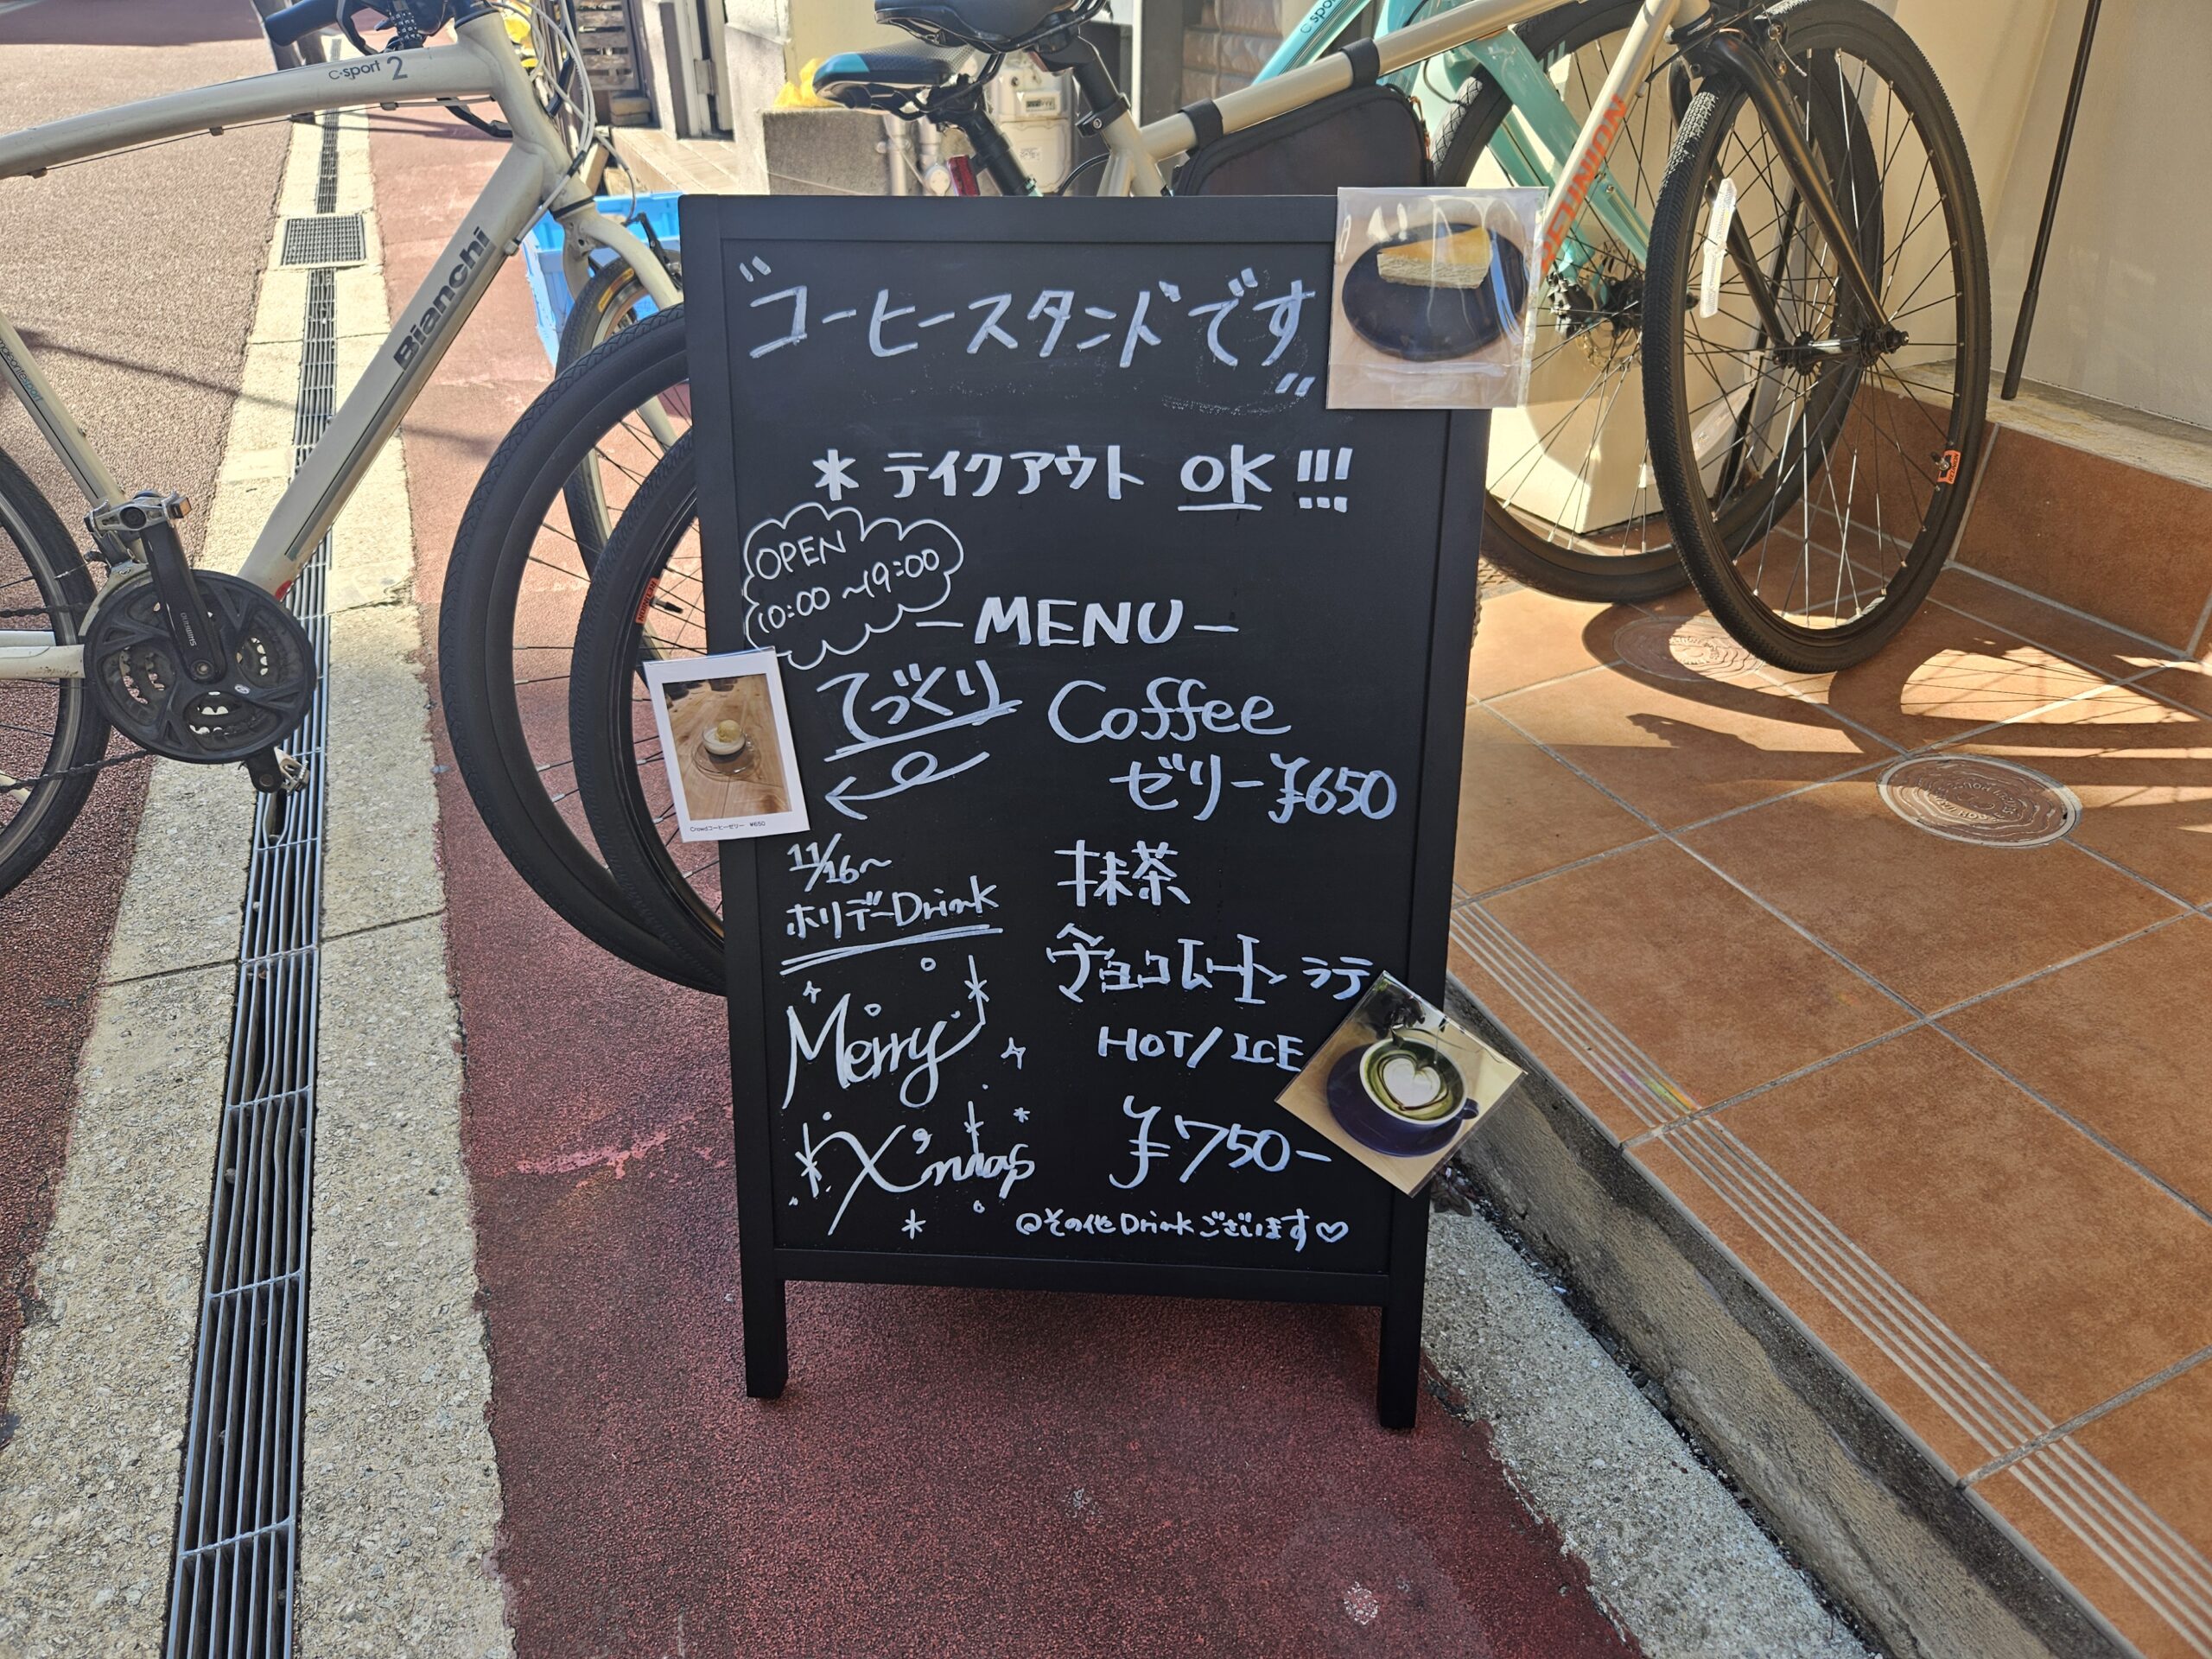 C-sport 2
Bianchi
C-sport
REUNION
SHIMANO
"コーヒースタンドです"
* テイクアウト OK !!!
OPEN
10:00 ~19:00
- MENU -
てづくり Coffee
ゼリー ¥650
Crowdコーヒーゼリー ¥650
11/16~
ホリデーDrink
Merry
X'mas
抹茶
チョコレートラテ
HOT / ICE
¥750-
@その他Drinkございます♡